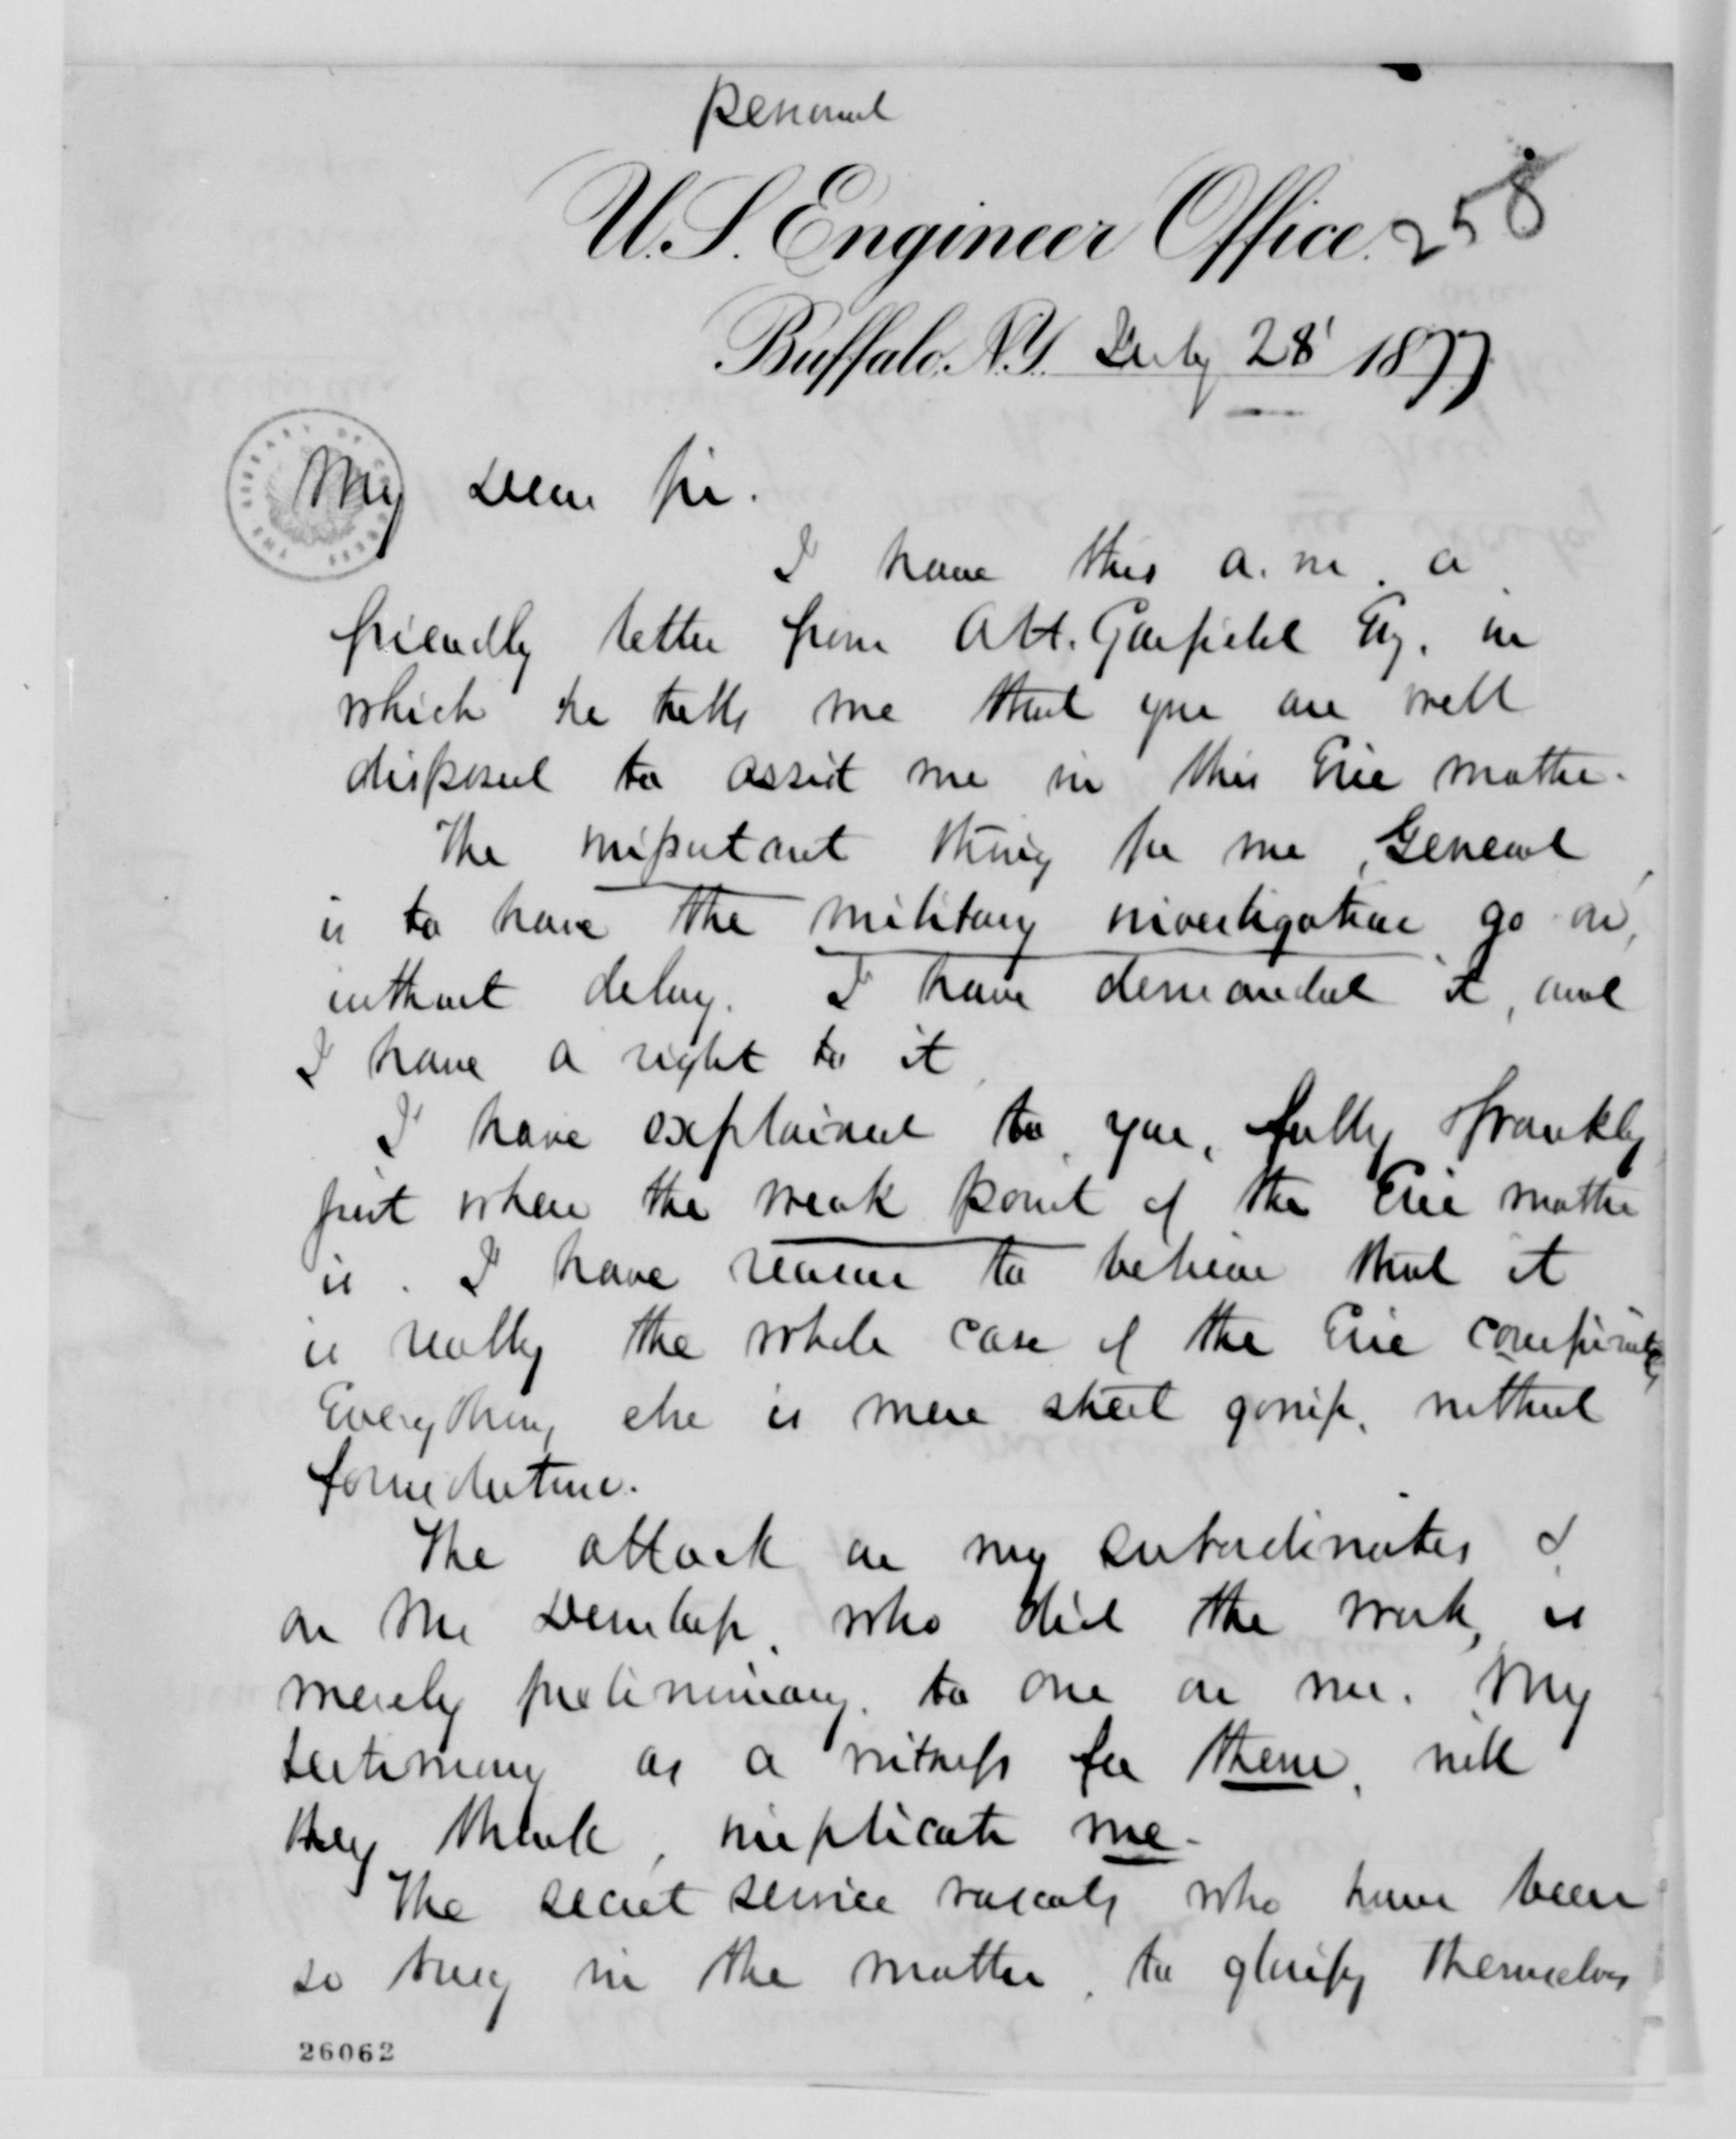 Personal
258
U.S. Engineer Office.
Buffalo, N.Y. July 28' 1877
THE LIBRARY OF CONGRESS
My Dear Sir.
I have this a.m. a
friendly letter from Abt. Garfield Esq. in
which he tells me that you are well
disposed to assist me in this Erie matter.
The important thing for me, General
is to have the military investigation go on,
without delay. I have demanded it, and
I have a right to it
I have explained to you, fully & frankly
just where the weak point of the Erie matter
is. I have reason to believe that it
is really the whole case of the Erie conspiracy
Everything else is mere street gossip, without
foundation.
The attack on my subordinates &
on Mr Dunlap, who did the work, is
merely preliminary to one on me. My
testimony as a witness for them, will
they think, implicate me.
The secret service rascals who have been
so busy in the matter, to glorify themselves
26062